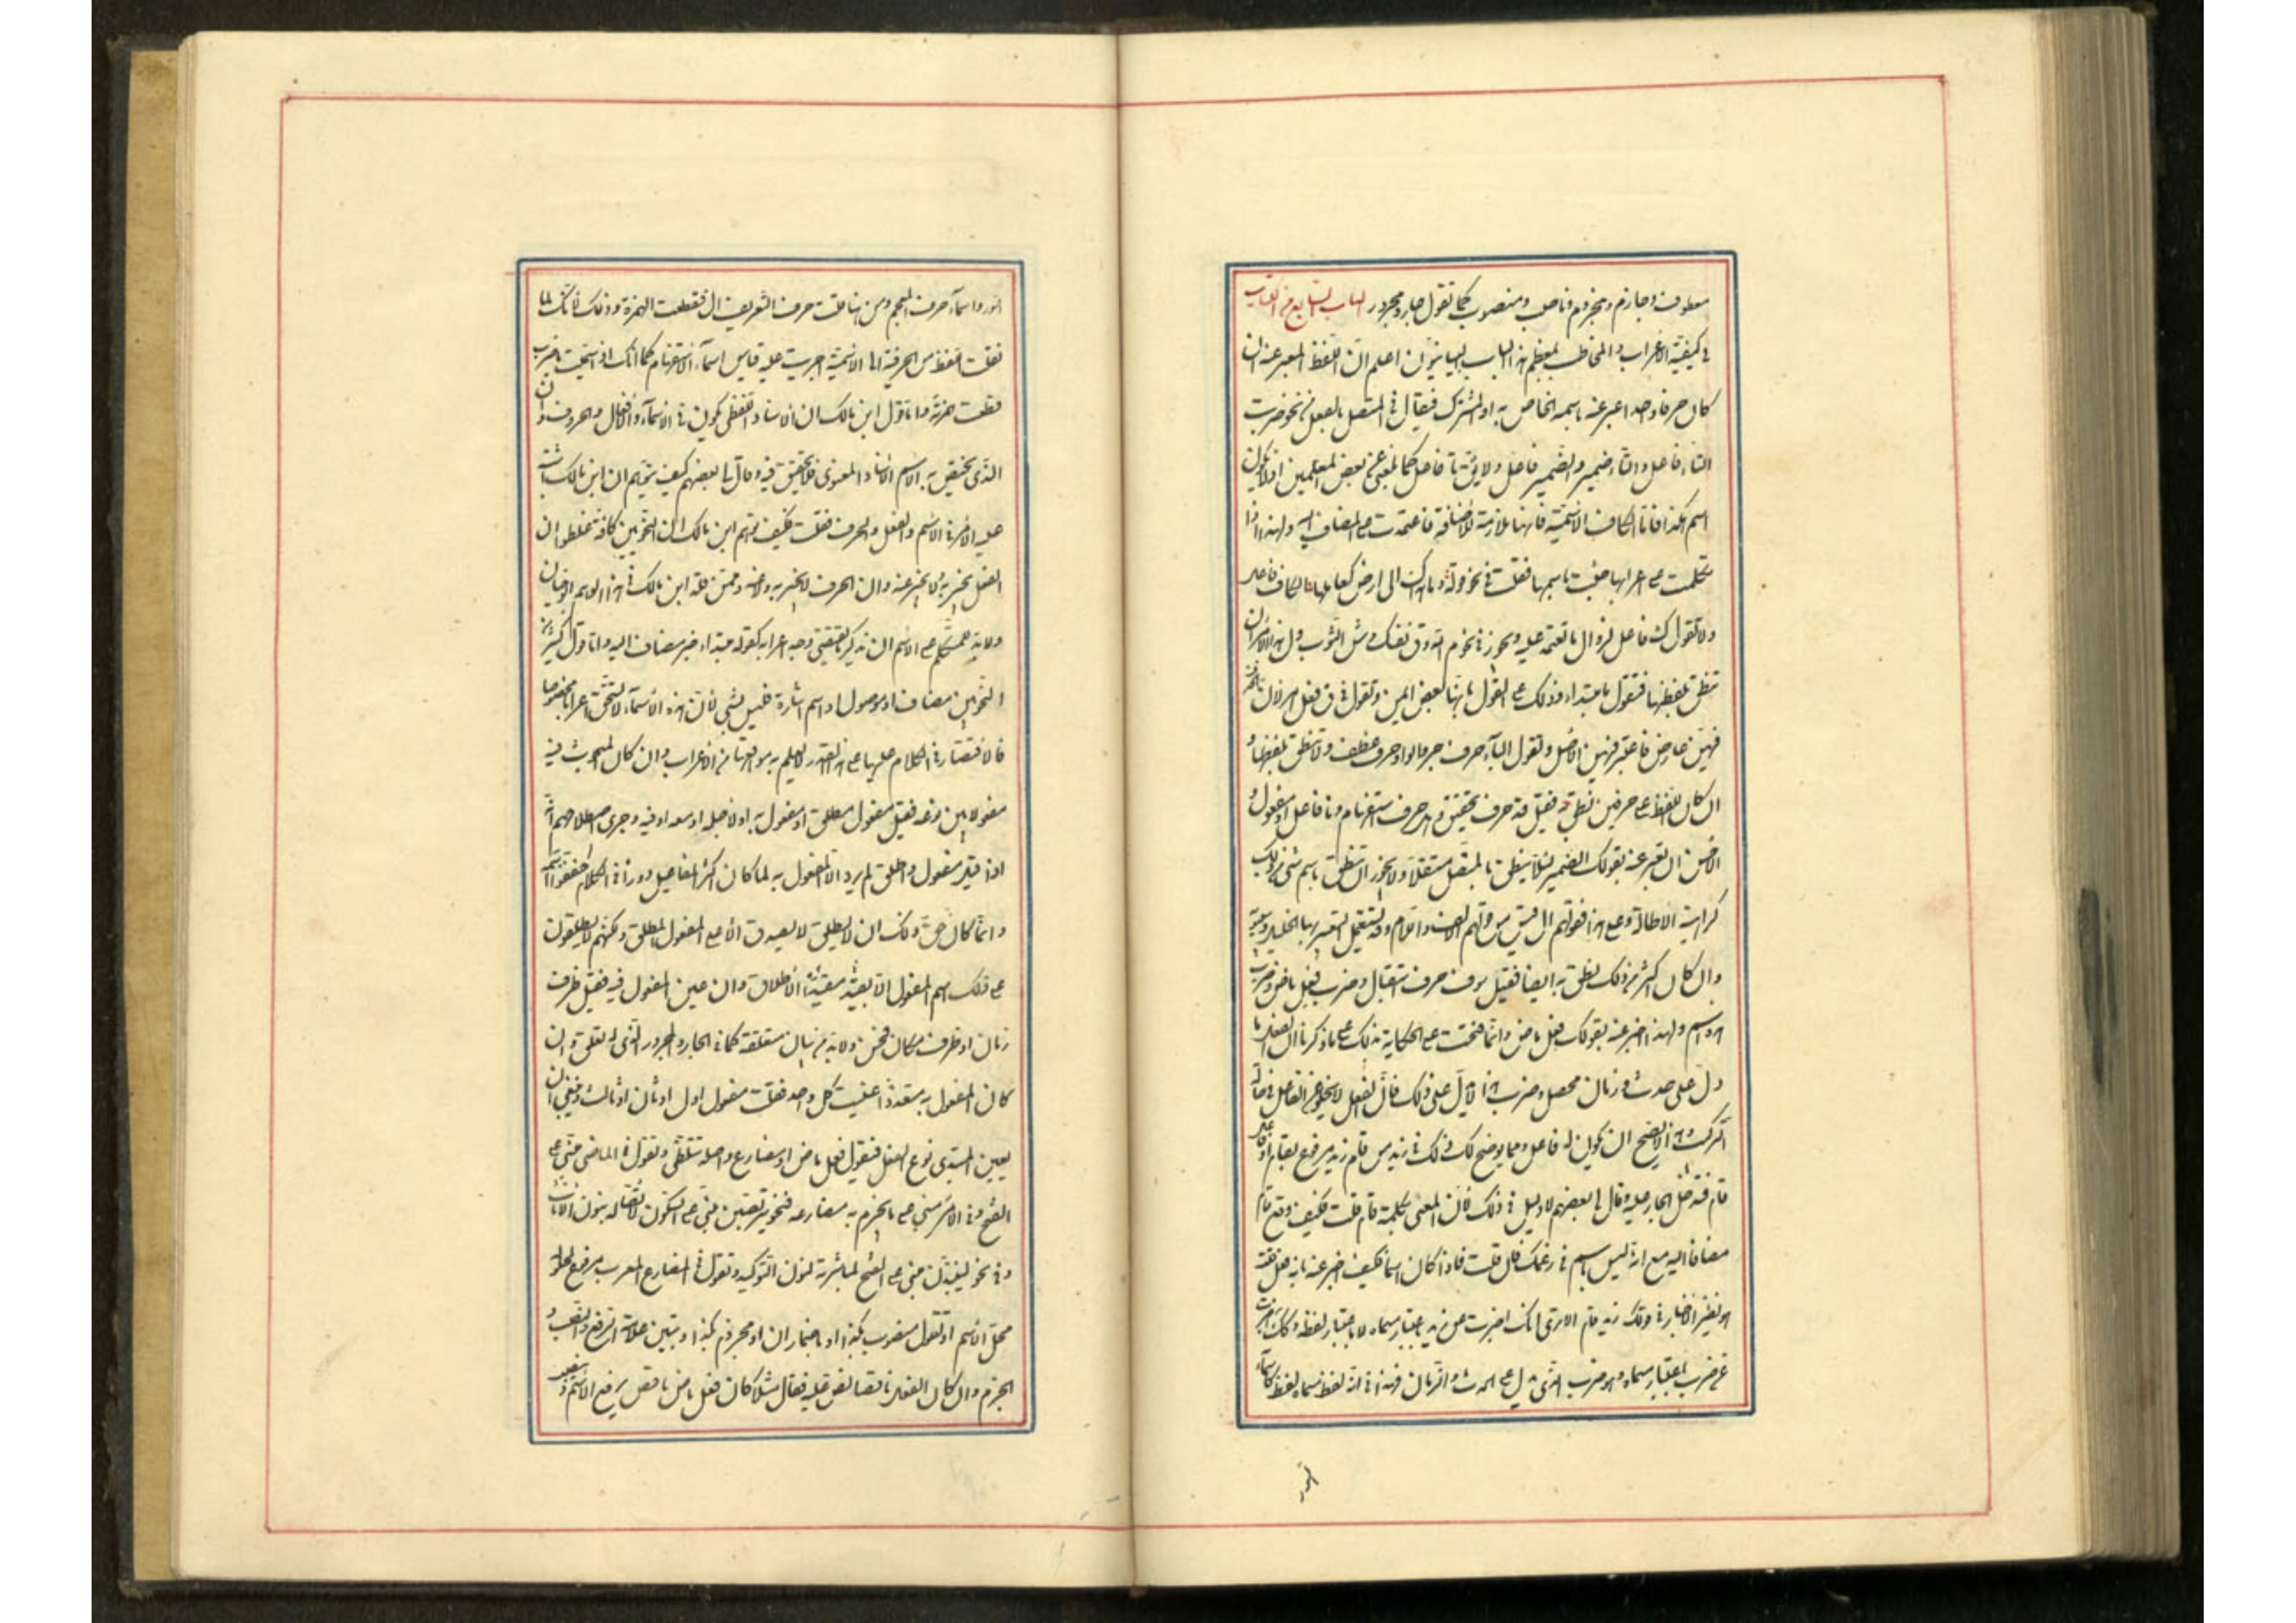 معطوف وجازم ومجزوم وناصب ومنصوب كما تقول جار ومجرور الباب السابع من الكتاب
في كيفية الاعراب والمخاطب بمعظم هذا الباب المبتدئون اعلم ان اللفظ المعبر عنه ان
كان حرفا واحدا عبر عنه باسمه الخاص به او المشترك فيقال في المتصل بالفعل من نحو ضربت
التاء فاعل والتاء ضمير والضمير فاعل ولا يقال ت فاعل كما بلغني عن بعض المعلمين اذ لا يكون
اسم هكذا فاما الكاف الاسمية فانها ملازمة للاضافة فاعتمدت على المضاف اليه ولهذا اذا
تكلمت على اعرابها جئت باسمها فقلت في نحو قوله وما هداك الى ارض كعالمها الكاف فاعل
ولا تقول ك فاعل لزوال ما تعتمد عليه ويجوز في نحو م الله وق نفسك وش الثوب ول هذا الامر ان
تنطق بلفظها فتقول م مبتدأ وذلك على القول بانها بعض ايمن وتقول ق فعل امر لان الحذف
فيهن عارض فاعتبر فيهن الاصل وتقول الباء حرف جر والواو حرف عطف ولا تنطق بلفظهما و
ان كان اللفظ على حرفين نطق به فقيل قد حرف تحقيق وهل حرف استفهام ونا فاعل او مفعول و
الاحسن ان تعبر عنه بقولك الضمير لئلا تنطق بالمتصل مستقلا ولا يجوز ان تنطق باسم شيء من ذلك
كراهية الاطالة وعلى هذا فقولهم ال اقيس من قولهم الالف واللام وقد استعمل التعبير بهما الخليل وسيبويه
وان كان اكثر من ذلك نطق به ايضا فقيل سوف حرف استقبال وضرب فعل ماض وضرب
هذا اسم ولهذا اخبر عنه بقولك فعل ماض وانما فتحت على الحكاية يدلك على ما ذكرنا ان الفعل ما
دل على حدث وزمان محصل وضرب هنا لا يدل على ذلك فان الفعل لا يخلو عن الفاعل في حالة
التركيب وهذا لا يصح ان يكون له فاعل ومما يوضح لك ذلك انك في زيد من قام زيد مرفوع بقام او فاعل
قام فتدخل الجار عليه وقال لي بعضهم لا دليل في ذلك لان المعنى بكلمة قام قلت فكيف وقع قام
مضافا اليه مع انه ليس باسم في زعمك فان قلت فاذا كان اسما فكيف اخبر عنه بانه فعل قلت
هو نظير الاخبار في قولك زيد قام الا ترى انك اخبرت عن زيد باعتبار مسماه لا باعتبار لفظه وكذلك اخبرت
عن ضرب باعتبار مسماه وهو ضرب الذي يدل على الحدث والزمان فهذا في انه لفظ مسماه لفظ كاسماء
السور
السور واسماء حروف المعجم ومن هنا قلت حرف التعريف ال فقطعت الهمزة وذلك لانك لما
نقلت اللفظ من الحرفية الى الاسمية اجريت عليه قياس اسماء الاستفهام كما انك اذا سميت باضرب
قطعت همزته واما قول ابن مالك ان الاسناد اللفظي يكون في الاسماء والافعال والحروف وان
الذي يختص به الاسم الاسناد المعنوي فلا تحقيق فيه وقال لي بعضهم كيف تتوهم ان ابن مالك اشتبه
عليه الامر في الاسم والفعل والحرف فقلت كيف توهم ابن مالك ان النحويين كافة غلطوا ان
الفعل يخبر به ولا يخبر عنه وان الحرف لا يخبر به ولا عنه وممن قلد ابن مالك في هذا الوهم ابو حيان
ولا بد للمتكلم على الاسم ان يذكر ما يقتضي وجه اعرابه كقوله مبتدأ خبر مضاف اليه واما قول كثير من
النحويين مضاف او موصول او اسم اشارة فليس بشيء لان هذه الاسماء لا تستحق اعرابا مخصوصا
فالاقتصار في الكلام عليها على هذا القدر لا يعلم به موقعها من الاعراب وان كان المبحوث فيه
مفعولا بين نوعه فقيل مفعول مطلق او مفعول به او لاجله او معه او فيه وجرى اصطلاحهم انه
اذا قيل مفعول واطلق لم يرد الا المفعول به لما كان اكثر المفاعيل دورا في الكلام خففوا اسمه
وانما كان حق ذلك ان لا يطلق لا يصدق الا على المفعول المطلق ولكنهم لا يطلقون
على ذلك اسم المفعول الا بقيد مقيدا الاطلاق وان عين المفعول فيه فقيل ظرف
زمان او ظرف مكان فحسن ولا بد من بيان متعلقه كما في الجار والمجرور الذي له تعلق وان
كان المفعول به متعددا عينت كل واحد فقلت مفعول اول او ثان او ثالث وينبغي ان
يعين المبتدي نوع الفعل فتقول فعل ماض او مضارع واصله تتلظى وتقول في الماضي مبني على
الفتح وفي الامر مبني على ما يجزم به مضارعه فنحو يتربصن مبني على السكون لاتصاله بنون الاناث
وفي نحو لينبذن مبني على الفتح لمباشرته لنون التوكيد وتقول في المضارع المعرب مرفوع لحلوله
محل الاسم او تقول منصوب بكذا او باضمار ان او مجزوم بكذا وبتبين علامة الرفع والنصب و
الجزم وان كان الفعل ناقصا نص عليه فقال مثلا كان فعل ماض ناقص يرفع الاسم وينصب